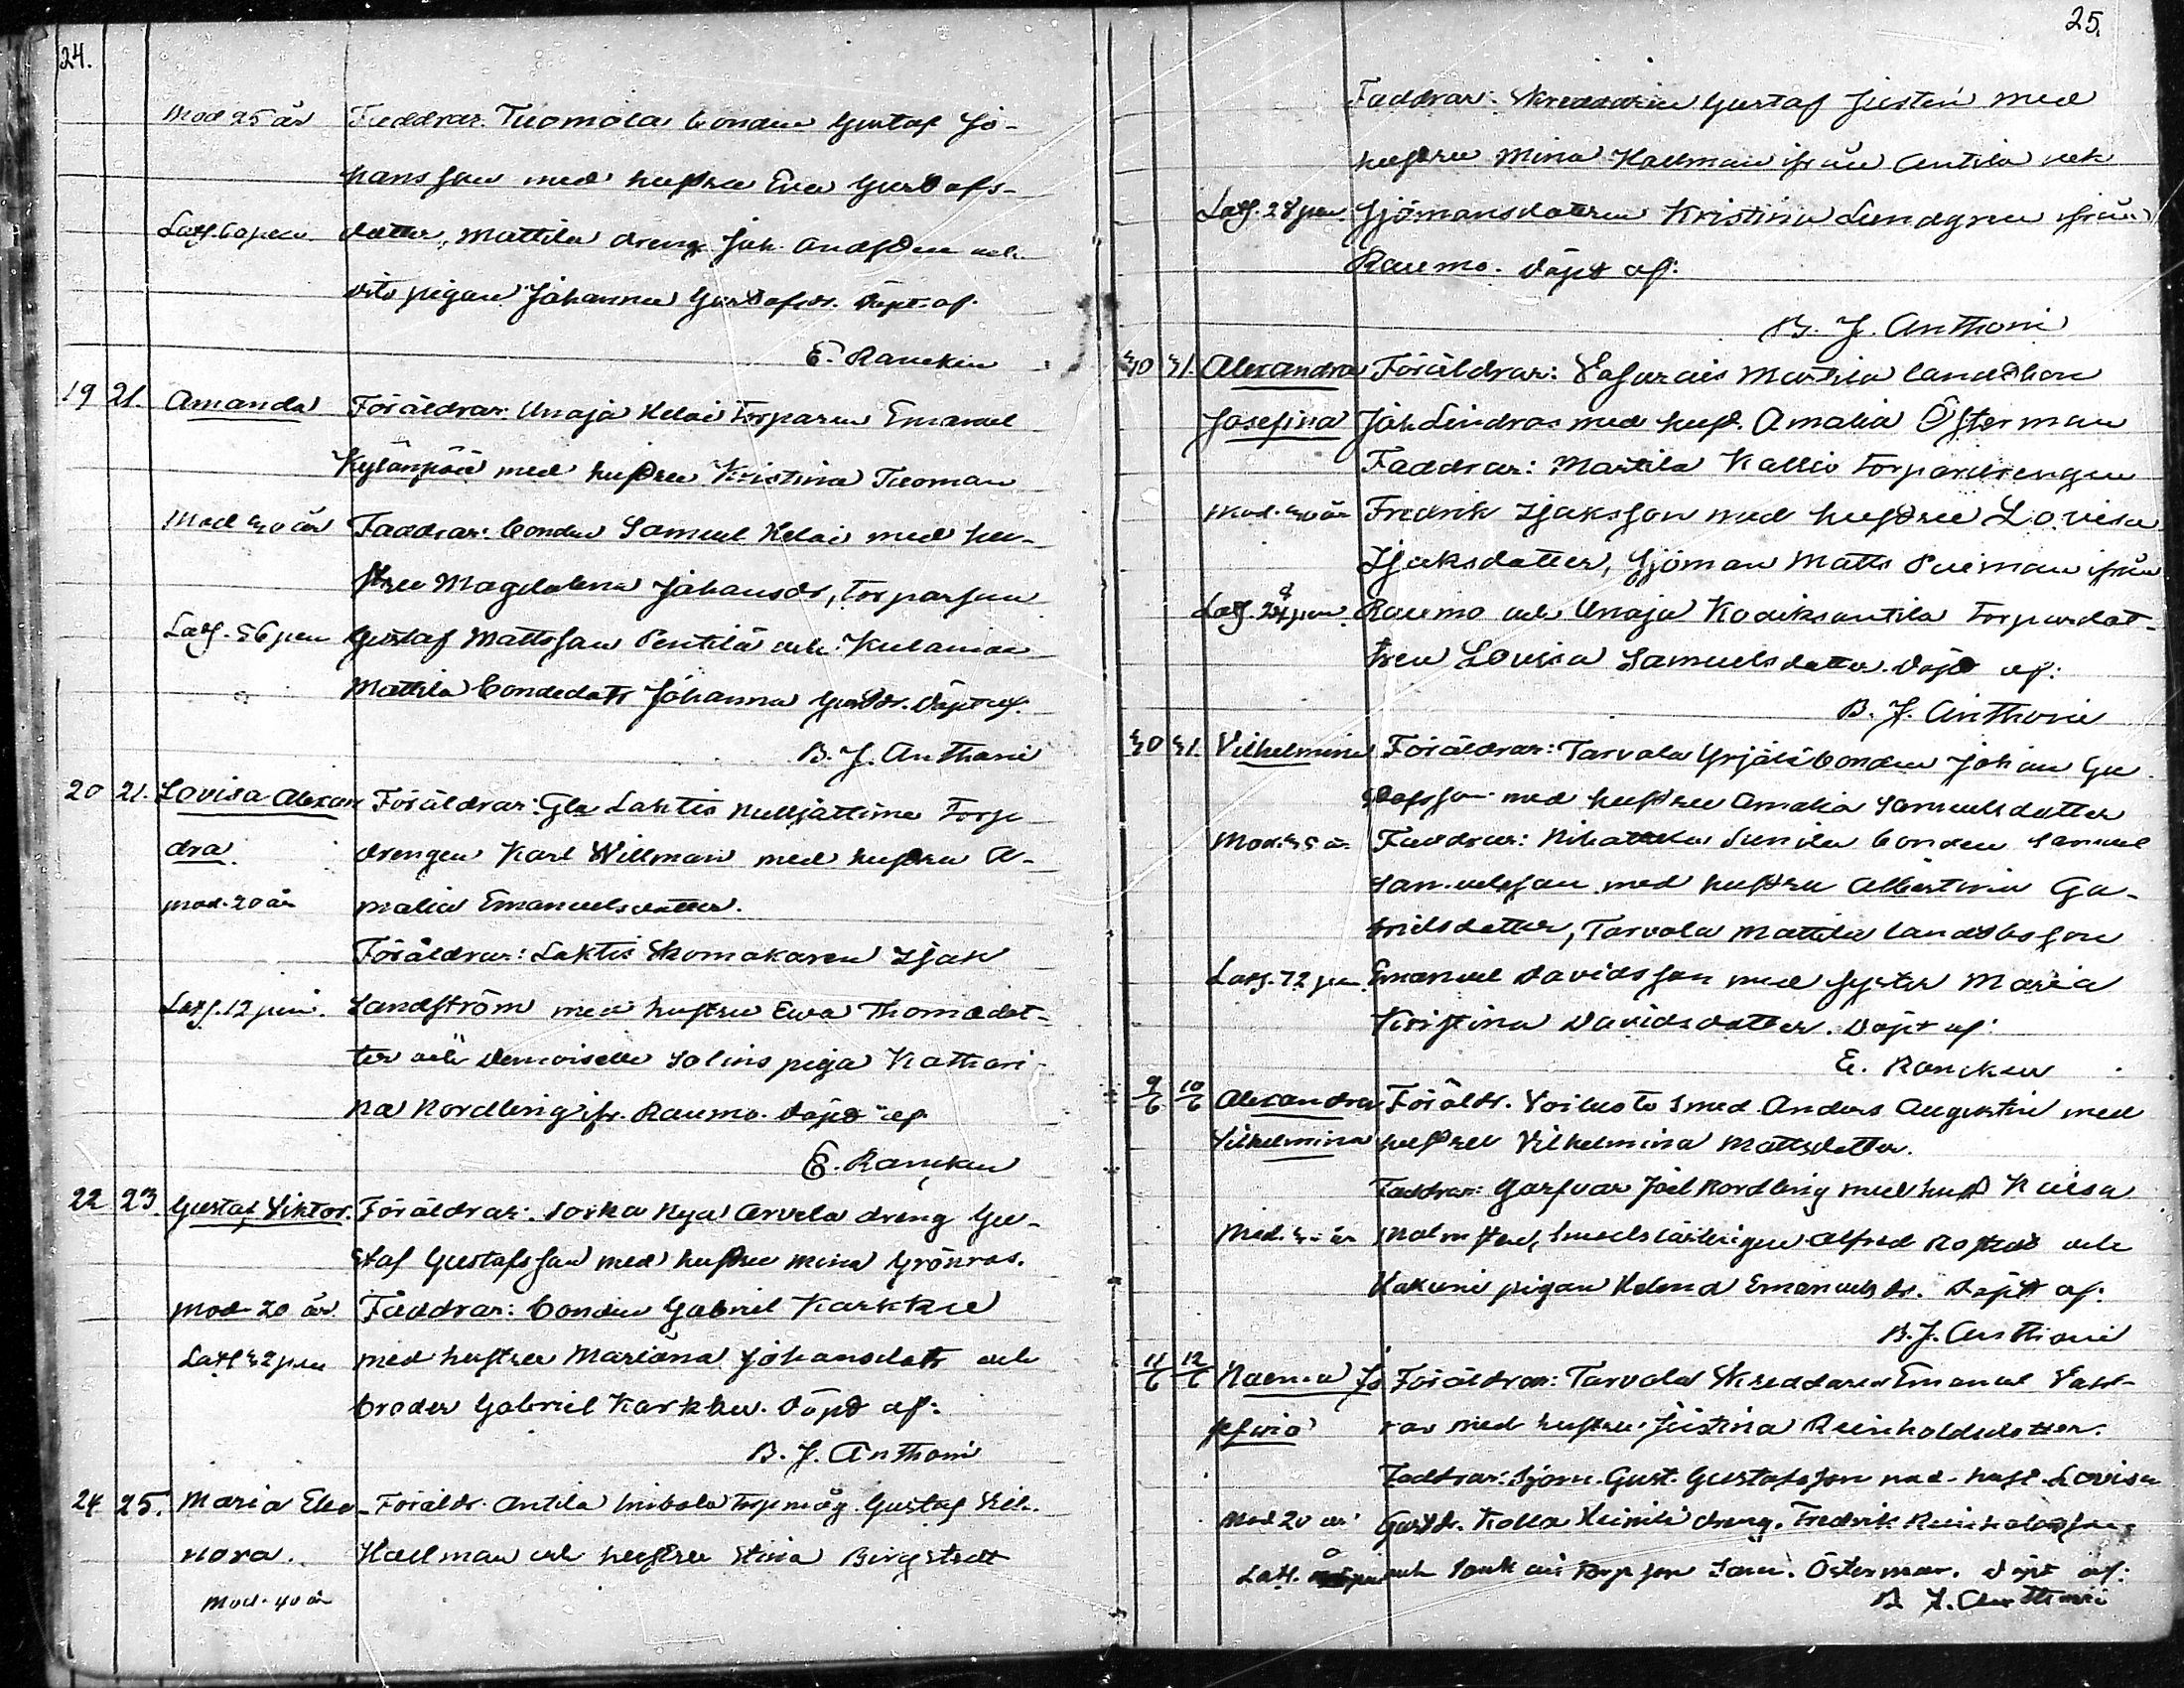 24.
Mod 25 år Faddrar. Tuomola bonden Gustaf Jo-
hansson med hustru Eva Gustafs-
Lasf. 60 peni dotter, Mattila dreng Joh. Andsson och
dito pigan Johanna Gustafsdr. Döpt af.
E. Rancken
19 21. Amanda Föräldrar: Unaja Heloi Torparen Emanuel
Kylänpää med hustru Kristina Tuoman
Mod 30 år Faddrar: bonden Samuel Heloi med hu-
stru Magdalena Johansdr, torparson
Lasf. 56 pen Gustaf Mattsson Pentilä och Kulamaa
Mattila bondedotr Johanna Gustdr. Döpt af.
B. J. Anthoni
20 21. Lovisa Alexan Föräldrar: Gla Lahtis Torp
dra. drengen Karl Willman med hustru A-
mod. 20 år malia Emanuelsdotter.
Föräldrar: Laktis Skomakaren Isak
Lasf. 12 peni. Sandström med hustru Eva Thomædot-
ter och Demoiselle Solins piga Kathari-
na Nordling ifr. Raumo. Döpt af
E. Rancken
22 23. Gustaf Viktor. Föräldrar: Sorka Nya Arvela dreng Gu-
staf Gustafsson med hustru Mina Grönros.
mod 20 år. Faddrar: bonden Gabriel Karkku
Lasf 32 pen med hustru Mariana Johansdotr och
broder Gabriel Karkku. Döpt af:
B. J. Anthoni
24 25. Maria Eleo- Föräldr. Antila torpmåg Gustaf Vilh.
nora. Hallman och hustru Stina Bergstedt
Mod. 40 år
25.
Faddrar: Skreddarin Gustaf Justén med
hustru Mina Hallman ifrån Antila och
Lasf. 28 pen. Sjömansdotren Kristina Lundgren ifrån
Raumo. Döpt af:
B. J. Anthoni
30 31. Alexandra Föräldrar: Vasarais Martila landtbon
Josefina Joh. Lindros med hust. Amalia Österman
Faddrar: Martila Kallio torpardrengen
Mod. 30 år Fredrik Isaksson med hustru Lovisa
Isaksdotter, Sjöman Matts Suiman ifrån
Lasf. 24 pen. Raumo och Unaja Kodiksantila torpardot-
tren Lovisa Samuelsdotter. Döpt af:
B. J. Anthoni
30 31. Vilhelmina Föräldrar: Tarvola Yrjälä bonden Johan Gu
stafsson med hustru Amalia Samuelsdotter
Mod. 35 år Faddrar: Sunila bonden Samuel
Samuelsson med hustru Albertina Ga-
brielsdotter, Tarvola Mattila landtbsson
Lasf. 72 pen. Emanuel Davidsson med syster Maria
Kristina Davidsdotter. Döpt af:
E. Rancken
9/6 10/6 Alexandra Föräldr. Voiluoto smed Anders Augustin med
Vilhelmina hustru Vilhelmina Mattsdotter.
Faddrar: Garfvar Joel Nordling med hust Kaisa
Mod. år Malmsten, Alfred och
Kakuni pigan Helena Emanuelsdr. Döpt af:
B. J. Anthoni
11/6 12/6 Naemia Jo Föräldrar: Tarvola Skreddaren Emanuel
sefina med hustru Justina Reinholdsdotter.
Faddrar: Sjöm. Gust. Gustafsson med hust. Lovisa
Mod 20 år Gustdr. Kolla Heinilä dreng. Fredrik Reinholdsson
Lasf. och torp son Österman. Döpt af:
B. J. Anthoni